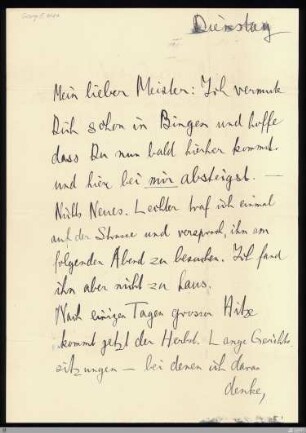 Dienstag
Mein lieber Meister: Ich vermute
Dich schon in Bingen und hoffe
dass Du nun bald hierher kommst
und hier bei mir absteigst. —
Nichts Neues. Lechter traf ich einmal
auf der Strasse und versprach, ihn am
folgenden Abend zu besuchen. Ich fand
ihn aber nicht zu haus.
Nach einigen Tagen grosser Hitze
kommt jetzt der Herbst. Lange Gerichts
sitzungen — bei denen ich daran
denke,